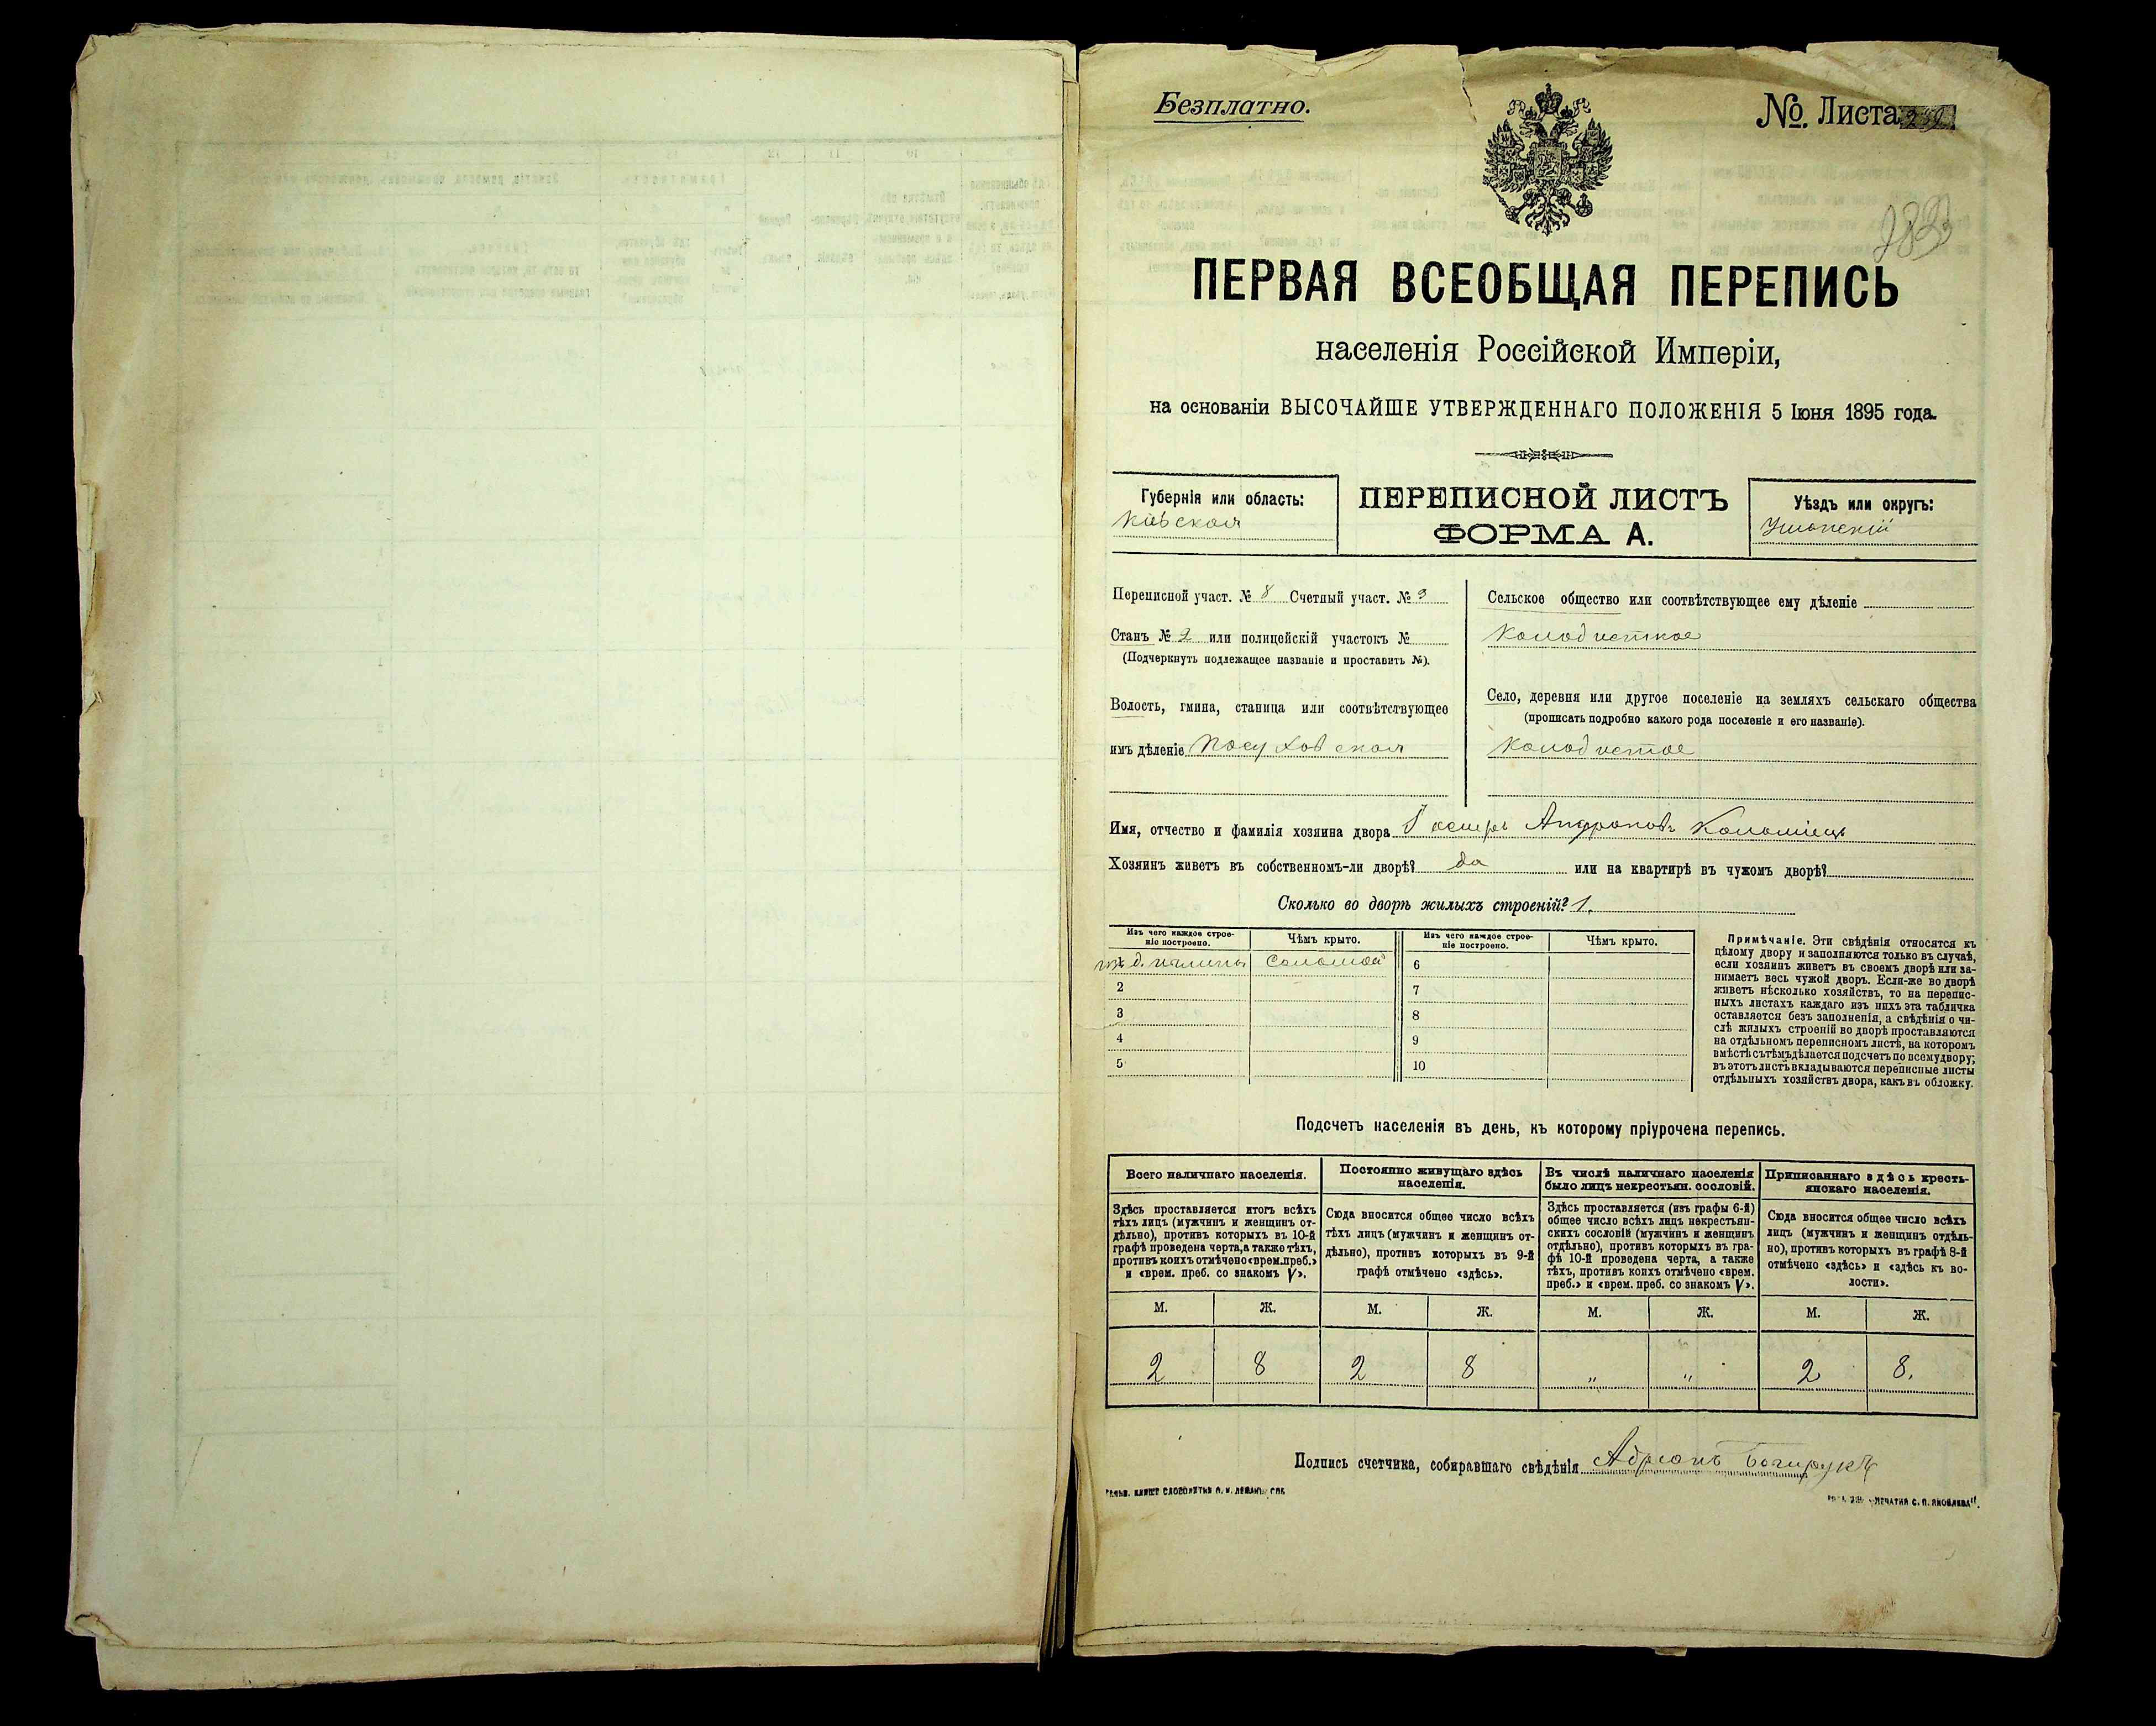 Безплатно.
№. Листа
ПЕРВАЯ ВСЕОБЩАЯ ПЕРЕПИСЬ
населенія Россійской Имперіи,
на основаніи ВЫСОЧАЙШЕ УТВЕРЖДЕННАГО ПОЛОЖЕНІЯ 5 Іюня 1895 года.
Губернія или область:
Кіевская
ПЕРЕПИСНОЙ ЛИСТЪ
ФОРМА А.
Уѣздъ или округъ:
Уманскій
Переписной участ. № 8 Счетный участ. № 9
Станъ № 2 или полицейскій участокъ №
(Подчеркнуть подлежащее названіе и проставить №).
Волость, гмина, станица или соотвѣтствующее
имъ дѣленіе Посуховская
Сельское общество или соотвѣтствующее ему дѣленіе
Колодистое
Село, деревня или другое поселеніе на земляхъ сельскаго общества
(прописать подробно какого рода поселеніе и его названіе).
Колодистое
Имя, отчество и фамилія хозяина двора Коломіецъ
Хозяинъ живетъ въ собственномъ-ли дворѣ? да или на квартирѣ въ чужомъ дворѣ?
Сколько во дворѣ жилыхъ строеній? 1.
Изъ чего каждое строе-
ніе построено.
Чѣмъ крыто.
Изъ чего каждое строе-
ніе построено.
Чѣмъ крыто.
глины Соломой 6
2 7
3 8
4 9
5 10
Примѣчаніе. Эти свѣдѣнія относятся къ
цѣлому двору и заполняются только въ случаѣ,
если хозяинъ живетъ въ своемъ дворѣ или за-
нимаетъ весь чужой дворъ. Если-же во дворѣ
живетъ нѣсколько хозяйствъ, то на перепис-
ныхъ листахъ каждаго изъ нихъ эта табличка
оставляется безъ заполненія, а свѣдѣнія о чи-
слѣ жилыхъ строеній во дворѣ проставляются
на отдѣльномъ переписномъ листѣ, на которомъ
вмѣстѣ съ тѣмъ дѣлается подсчетъ по всему двору;
въ этотъ листъ вкладываются переписные листы
отдѣльныхъ хозяйствъ двора, какъ въ обложку.
Подсчетъ населенія въ день, къ которому пріурочена перепись.
Всего наличнаго населенія.
Здѣсь проставляется итогъ всѣхъ
тѣхъ лицъ (мужчинъ и женщинъ от-
дѣльно), противъ которыхъ въ 10-й
графѣ проведена черта, а также тѣхъ,
противъ коихъ отмѣчено «врем. преб.»
и «врем. преб. со знакомъ V».
Постоянно живущаго здѣсь
населенія.
Сюда вносится общее число всѣхъ
тѣхъ лицъ (мужчинъ и женщинъ от-
дѣльно), противъ которыхъ въ 9-й
графѣ отмѣчено «здѣсь».
Въ числѣ наличнаго населенія
было лицъ некрестьян. сословій.
Здѣсь проставляется (изъ графы 6-й)
общее число всѣхъ лицъ некрестьян-
скихъ сословій (мужчинъ и женщинъ
отдѣльно), противъ которыхъ въ гра-
фѣ 10-й проведена черта, а также
тѣхъ, противъ коихъ отмѣчено «врем.
преб.» и «врем. преб. со знакомъ V».
Приписаннаго здѣсь кресть-
янскаго населенія.
Сюда вносится общее число всѣхъ
лицъ (мужчинъ и женщинъ отдѣль-
но), противъ которыхъ въ графѣ 8-й
отмѣчено «здѣсь» и «здѣсь къ во-
лости».
М. Ж. М. Ж. М. Ж. М. Ж.
2 8 2 8 „ „ 2 8.
Подпись счетчика, собиравшаго свѣдѣнія Адріанъ